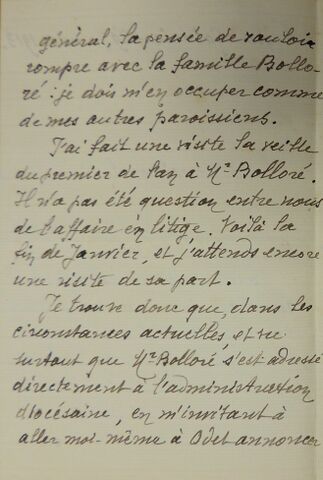 général, la pensée de vouloir
rompre avec la famille Bollo-
ré : je dois m'en occuper comme
de mes autres paroissiens.
J'ai fait une visite la veille
du premier de l'an à Mr Bolloré.
Il n'a pas été question entre nous
de l'affaire en litige. Voilà la
fin de Janvier, et j'attends encore
une visite de sa part.
Je trouve donc que, dans les
circonstances actuelles, et vu
surtout que Mr Bolloré s'est adressé
directement à l'administration
diocésaine, en m'invitant à
aller moi-même à Odet annoncer